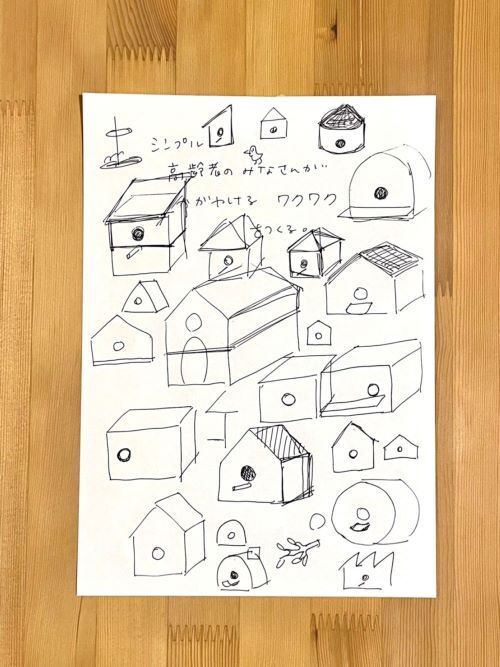 シンプル
高齢者のみなさんが
がわける ワクワク
をつくる。